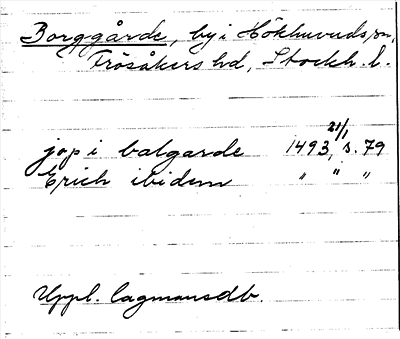 Borggårde, by i Hökhuvuds sn,
Frösåkers hd, Stockh. l.
jop i balgarde 1493 21/1, s. 79
Erich ibidem " " "
Uppl. lagmansdb.